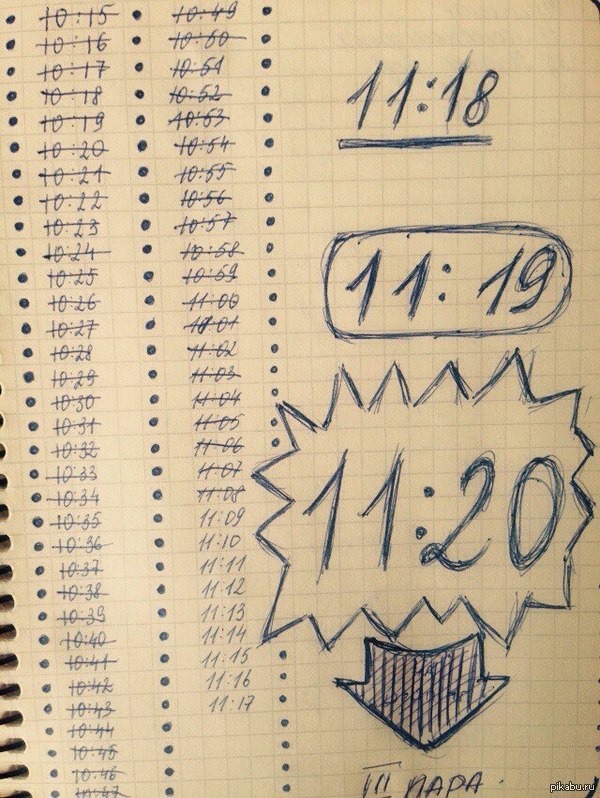 10:15
10:16
10:17
10:18
10:19
10:20
10:21
10:22
10:23
10:24
10:25
10:26
10:27
10:28
10:29
10:30
10:31
10:32
10:33
10:34
10:35
10:36
10:37
10:38
10:39
10:40
10:41
10:42
10:43
10:44
10:45
10:46
10:47
10:49
10:50
10:51
10:52
10:53
10:54
10:55
10:56
10:57
10:58
10:59
11:00
11:01
11:02
11:03
11:04
11:05
11:06
11:07
11:08
11:09
11:10
11:11
11:12
11:13
11:14
11:15
11:16
11:17
11:18
11:19
11:20
III ПАРА.
pikabu.ru